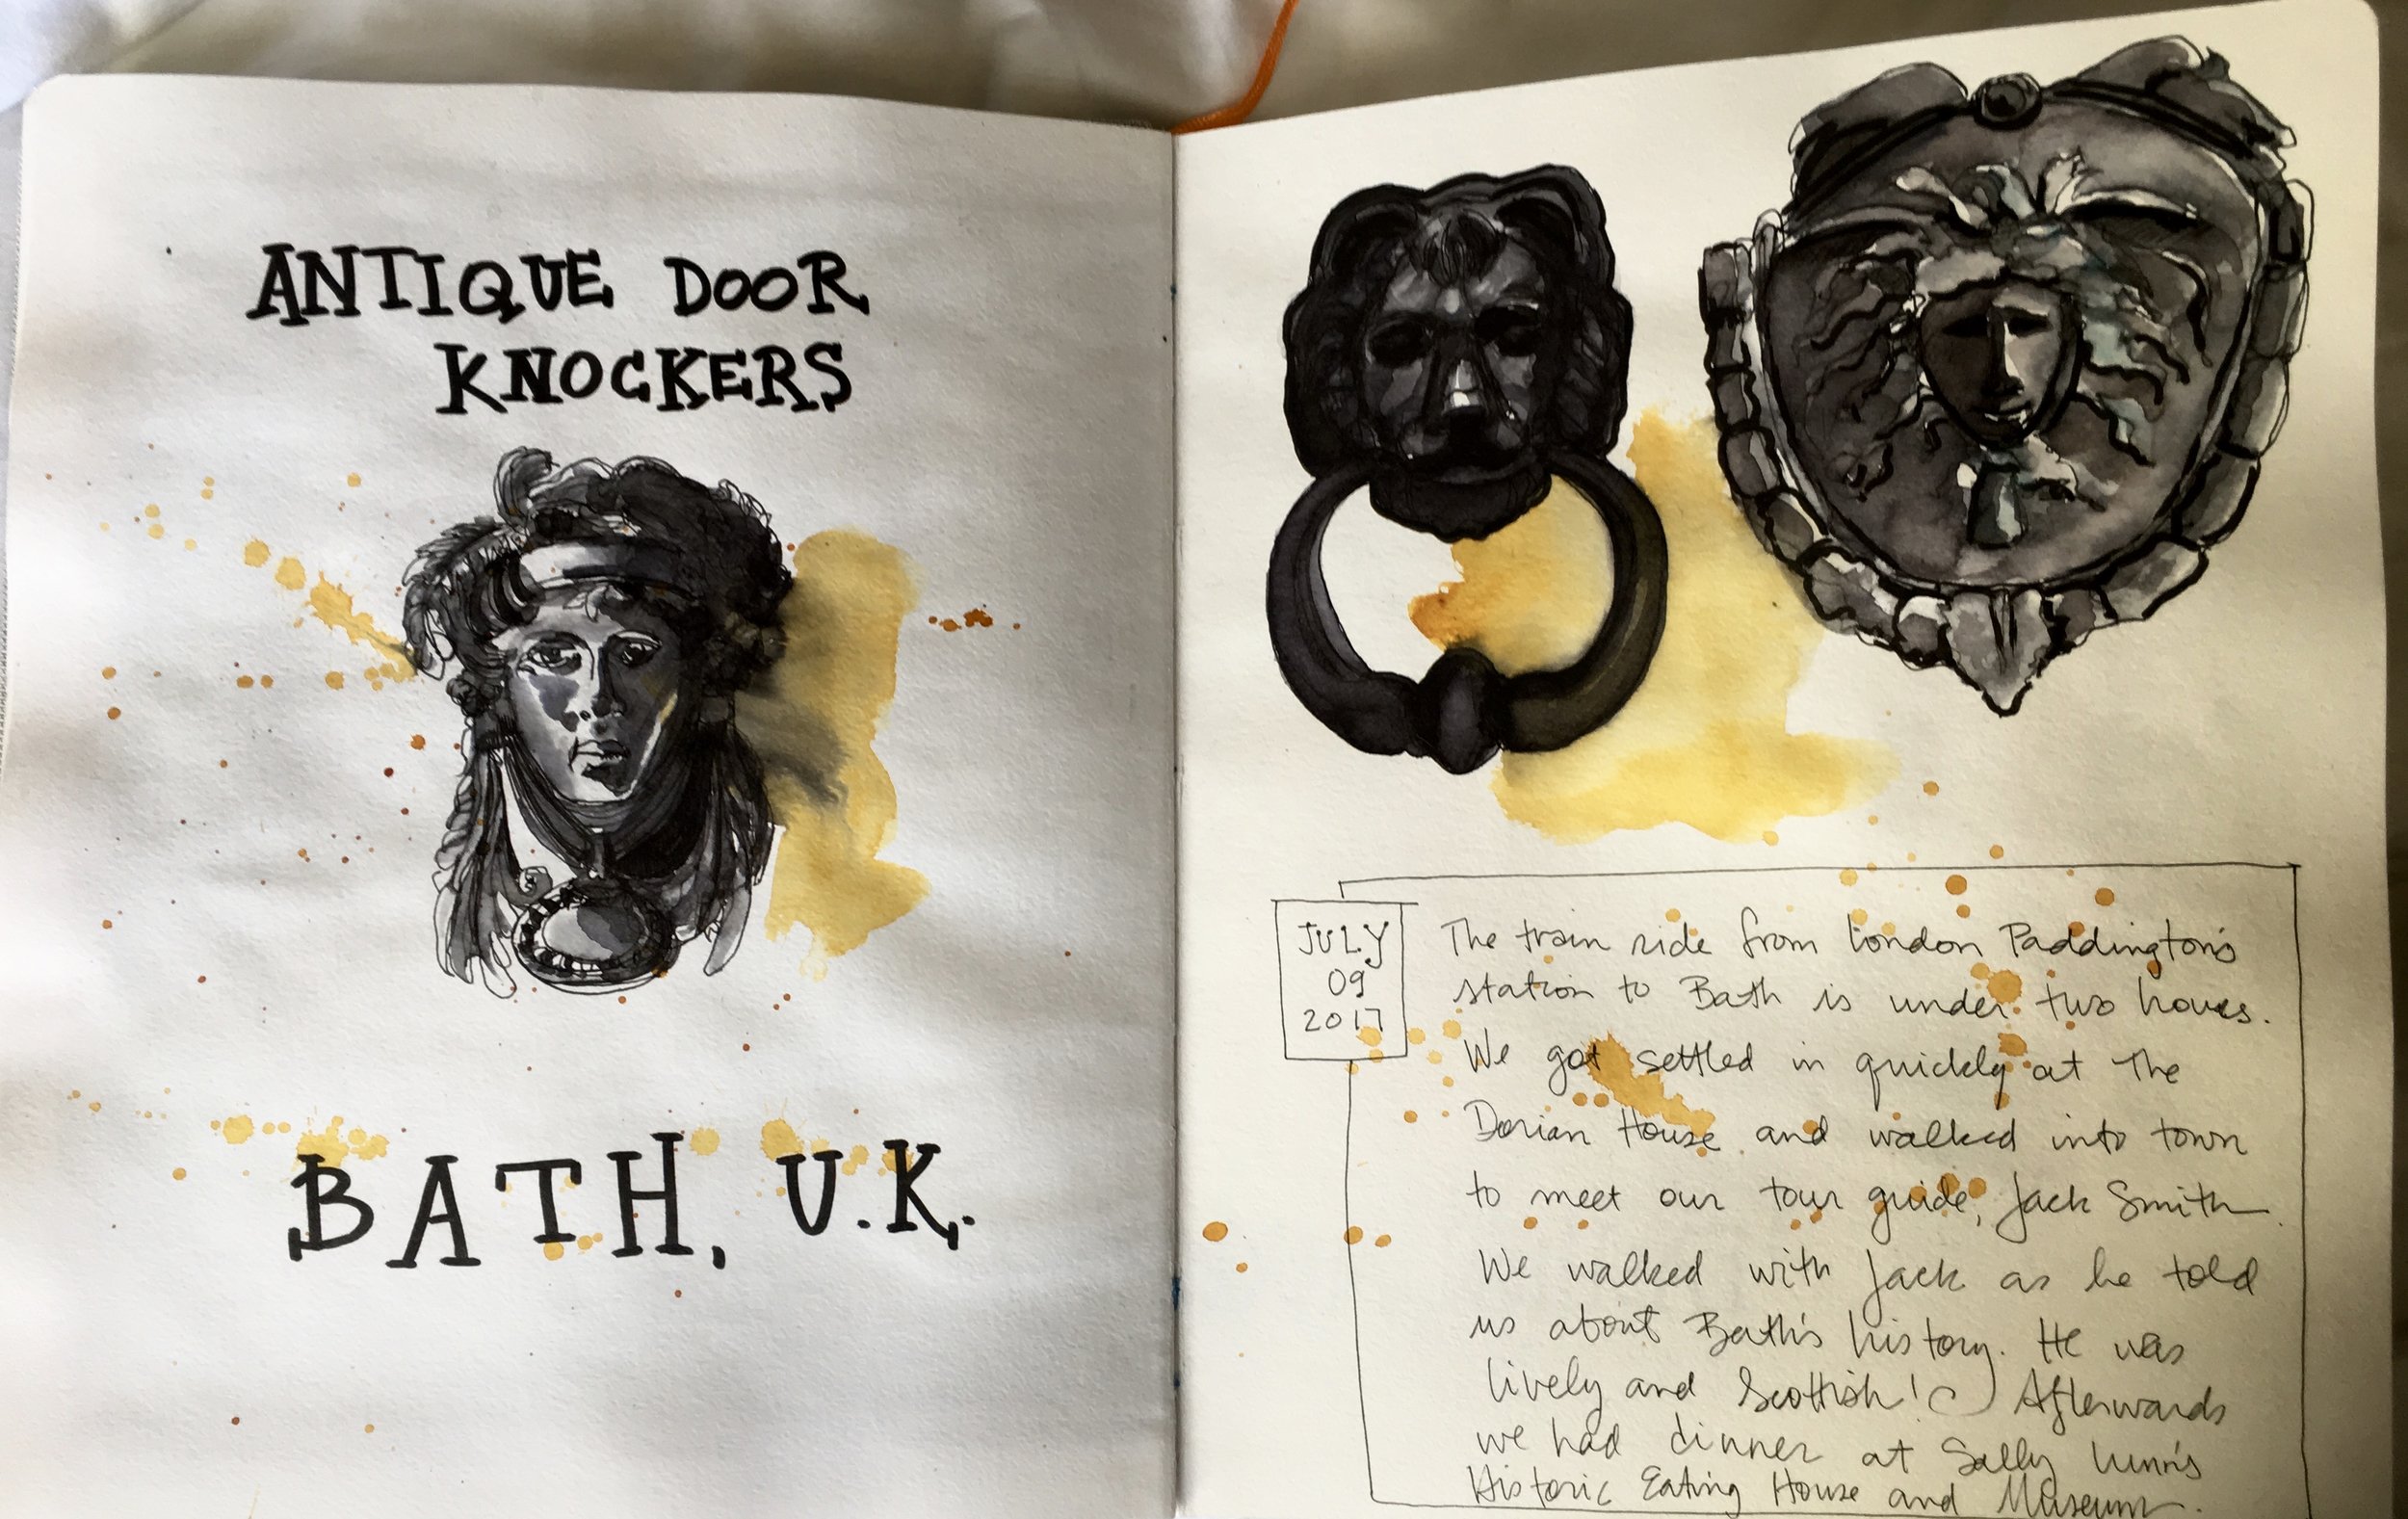 ANTIQUE DOOR
KNOCKERS
BATH, U.K.
JULY
09
2017
The train ride from London Paddington's
station to Bath is under two hours.
We got settled in quickly at The
Dorian House and walked into town
to meet our tour guide, Jack Smith.
We walked with Jack as he told
us about Bath's history. He was
lively and Scottish! Afterwards
we had dinner at Sally Lunn's
Historic Eating House and Museum.